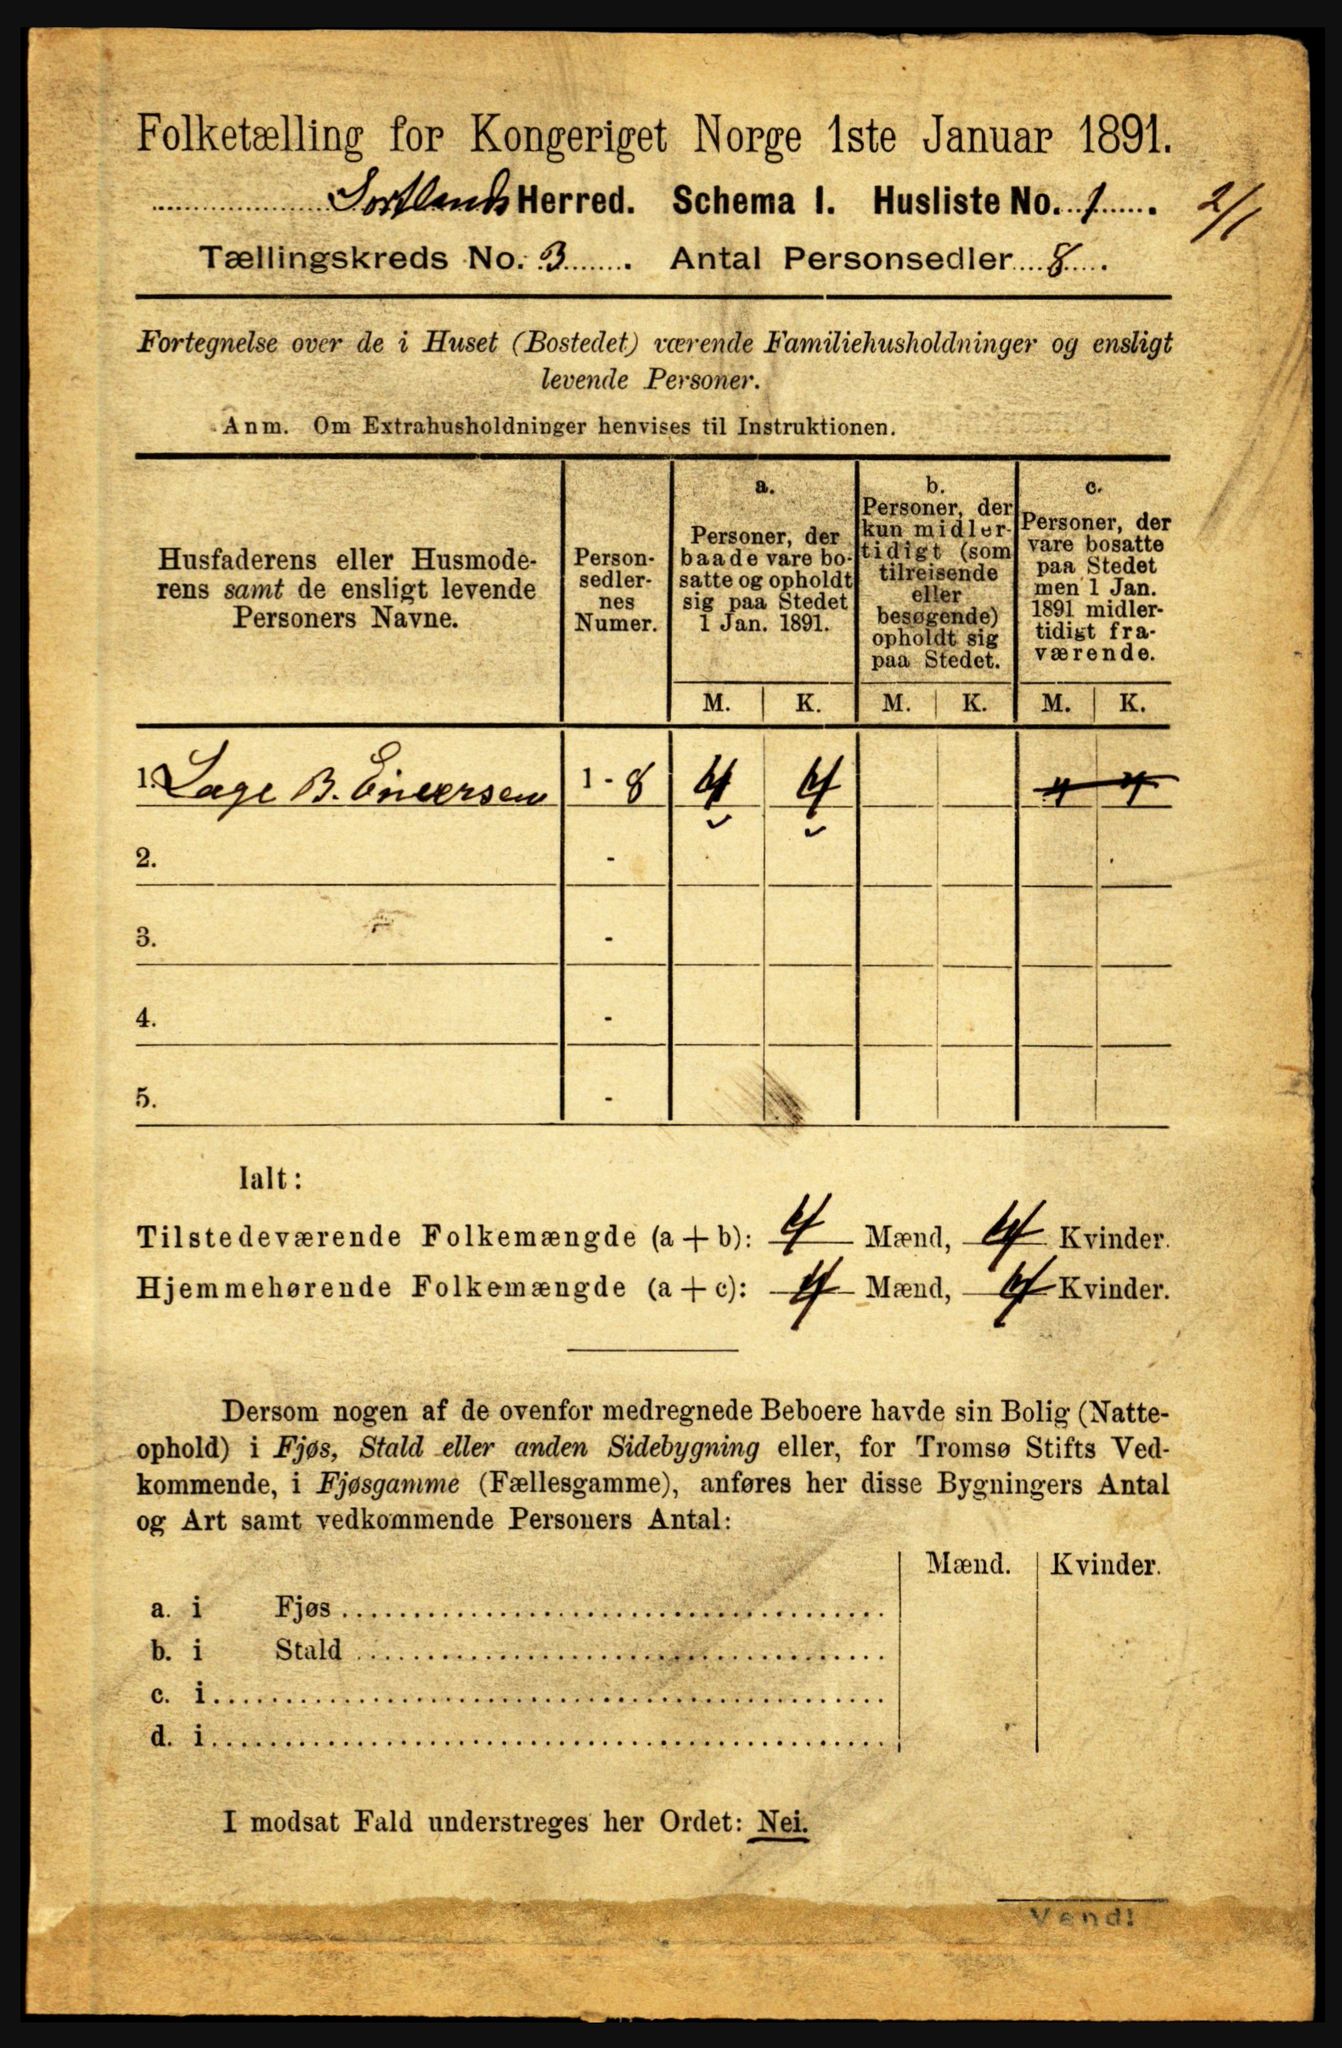 Folketælling for Kongeriget Norge 1ste Januar 1891.
Sortlands Herred. Schema 1. Husliste No. 1. 2/1
Tællingskreds No. 3. Antal Personsedler 8.
Fortegnelse over de i Huset (Bostedet) værende Familiehusholdninger og ensligt
levende Personer.
Anm. Om Extrahusholdninger henvises til Instruktionen.
Husfaderens eller Husmode-
rens samt de ensligt levende
Personers Navne.
Person-
sedler-
nes
Numer.
a.
Personer, der
baade vare bo-
satte og opholdt
sig paa Stedet
1 Jan. 1891.
b.
Personer, der
kun midler-
tidigt (som
tilreisende
eller
besøgende)
opholdt sig
paa Stedet.
c.
Personer, der
vare bosatte
paa Stedet
men 1 Jan.
1891 midler-
tidigt fra-
værende.
M. K. M. K. M. K.
1. Lage B. 1 - 8 4 4 4 4
2. -
3. -
4. -
5. -
Ialt:
Tilstedeværende Folkemængde (a + b): 4 Mænd, 4 Kvinder.
Hjemmehørende Folkemængde (a + c): 4 Mænd, 4 Kvinder.
Dersom nogen af de ovenfor medregnede Beboere havde sin Bolig (Natte-
ophold) i Fjøs, Stald eller anden Sidebygning eller, for Tromsø Stifts Ved-
kommende, i Fjøsgamme (Fællesgamme), anføres her disse Bygningers Antal
og Art samt vedkommende Personers Antal:
Mænd. Kvinder.
a. i Fjøs
b. i Stald
c. i
d. i
I modsat Fald understreges her Ordet: Nei.
Vend!